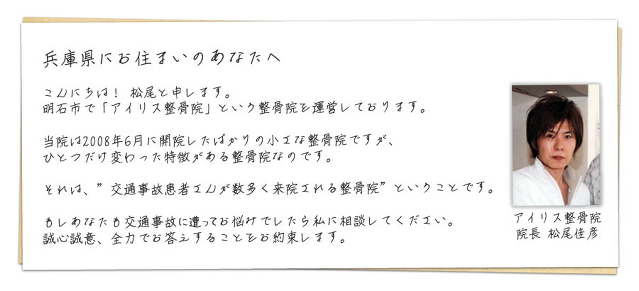 兵庫県にお住まいのあなたへ
こんにちは！ 松尾と申します。
明石市で「アイリス整骨院」という整骨院を運営しております。
当院は2008年6月に開院したばかりの小さな整骨院ですが、
ひとつだけ変わった特徴がある整骨院なのです。
それは、”交通事故患者さんが数多く来院される整骨院”ということです。
もしあなたも交通事故に遭ってお悩みでしたら私に相談してください。
誠心誠意、全力でお答えすることをお約束します。
アイリス整骨院
院長 松尾佳彦